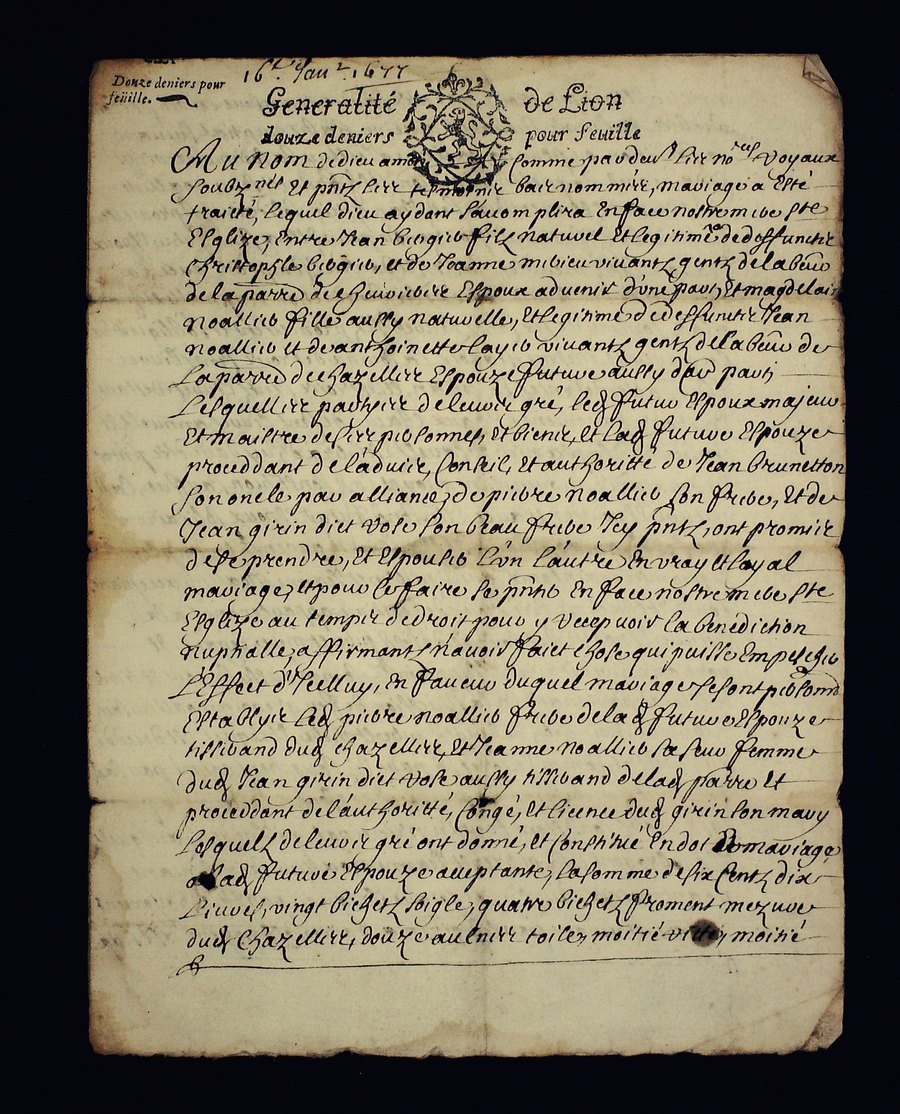 Douze deniers pour
feüille.
16e Janr. 1677
Generalité de Lion
douze deniers pour feuille
Au nom de dieu amen Comme pardevt les nores Royaux
soubznés Et pntz les tesmoins bas nommés, mariage a Esté
traicté, lequel dieu aydant s'accomplira En face nostre mere Ste
Esglize, Entre Jean filz naturel Et legitime de deffunctz
Christophle et de Jeanne vivantz gentz de labeur
de la parre de Espoux advenir d'une part, Et magdelaine
noallier fille aussy naturelle, Et legitime de deffunctz Jean
noallier et de anthoinette vivantz gentz de labeur de
La parre de chazelles Espouze future aussy d'au parti
Lesquelles partyes de leurs gré, led futur Espoux majeur
Et maistre de ses personnes, Et biens, Et Lad future Espouze
proceddant de l'advis, Conseil, Et authoritté de Jean brunetton
son oncle par alliance, de pierre noallier son frere, Et de
Jean girin dict vose son beau frere Icy pntz, ont promis
de se prendre, Et Espouser L'un L'autre En vray Et loyal
mariage, Et pour ce faire se pnter En face nostre mere Ste
Esglize au temps de droit pour y recepvoir la benediction
nuptialle, affirmantz n'avoir faict chose qui puisse Empescher
L'Effect d'Icelluy, En faveur duquel mariage se sont
Establys led pierre noallier frere de lad future Espouze
tisserand dud chazelles, Et Jeanne noallier sa seur femme
dud Jean girin dict vose aussy tisserand de lad parre Et
proceddant de l'authoritté, Congé, Et licence dud girin son mary
Lesquelz de leurs gré ont donné, Et Constitué En dot mariage
a lad future Espouze acceptante, la somme de six Centz dix
Livres, vingt bichetz seigle, quatre bichetz froment mezure
dud Chazelles, douze aulnes toile, moitié moitié